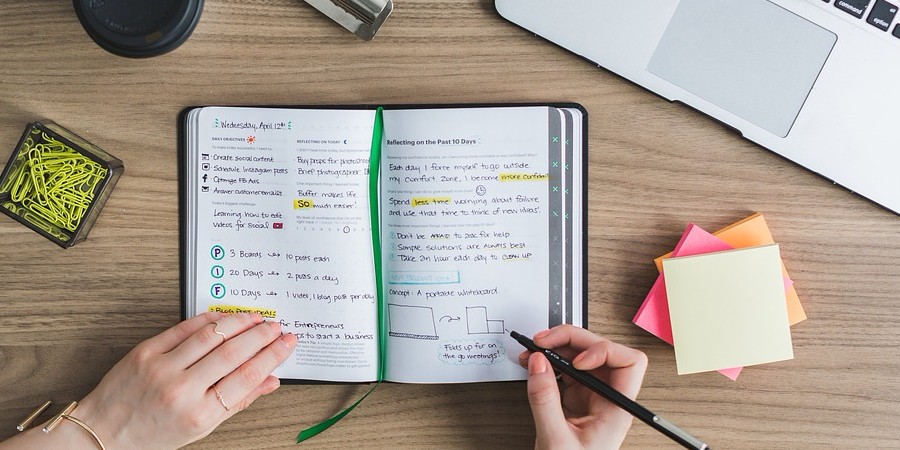 Wednesday, April 12th
DAILY OBJECTIVES
Create social content
Schedule Instagram posts
Optimize FB Ads
Answer customer emails
Today's biggest challenge:
Learning how to edit
videos for social
P 3 Boards 10 posts each
I 20 Days 2 posts a day
F 10 Days 1 video, 1 blog post per day
BLOG POST IDEAS:
for Entrepreneurs
to start a business
REFLECTING ON TODAY
Buy props for
Brief photographer
Buffer makes life
SO much easier!
Reflecting on the Past 10 Days
Each day I force myself to go outside
my comfort zone, I become more
Spend less time worrying about failure
and use that time to think of new ideas!
Don't be AFRAID to ask for help
Simple solutions are ALWAYS best
Take an hour each day to CLEAN UP
Concept: A portable whiteboard
Folds up for on
the go meetings!
command
option